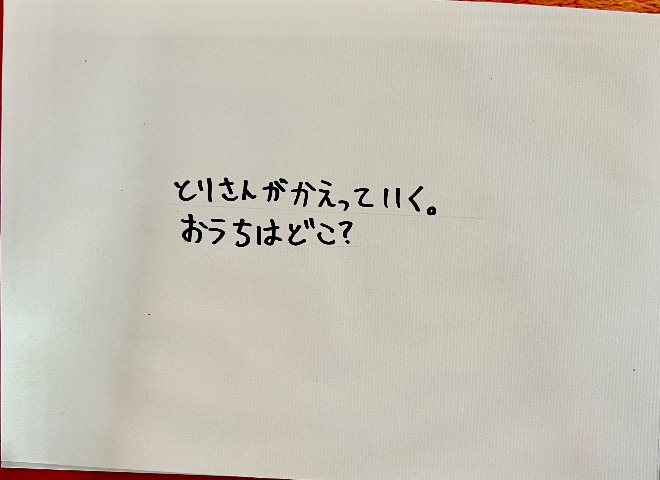 とりさんがかえっていく。
おうちはどこ?